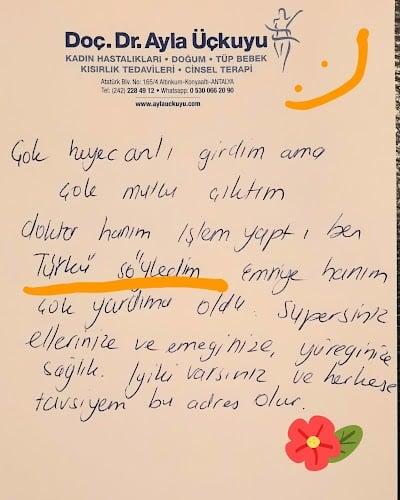 Doç. Dr. Ayla Üçkuyu
KADIN HASTALIKLARI • DOĞUM • TÜP BEBEK
KISIRLIK TEDAVİLERİ • CİNSEL TERAPİ
Atatürk Blv. No: 165/4 Altınkum-Konyaaltı-ANTALYA
Tel: (242) 228 49 12 • Whatsapp: 0 530 066 20 90
www.aylauckuyu.com
Çok heyecanlı girdim ama
çok mutlu çıktım
doktor hanım işlem yaptı ben
Türkü söyledim Emriye hanım
çok yardımcı oldu. Süpersiniz
ellerinize ve emeğinize, yüreğinize
sağlık. İyiki varsınız ve herkese
tavsiyem bu adres olur.